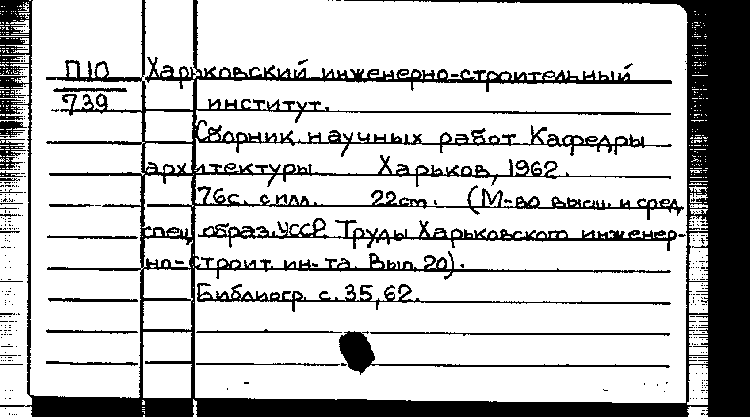 П10 Харьковский инженерно-строительный
739 институт.
Сборник научных работ Кафедры
архитектуры Харьков, 1962.
76с. с илл. 22cm. (М-во высш. и сред.
спец. образ. УССР. Труды Харьковского инженер-
но-строит. ин-та. Вып. 20).
Библиогр. с. 35, 62.